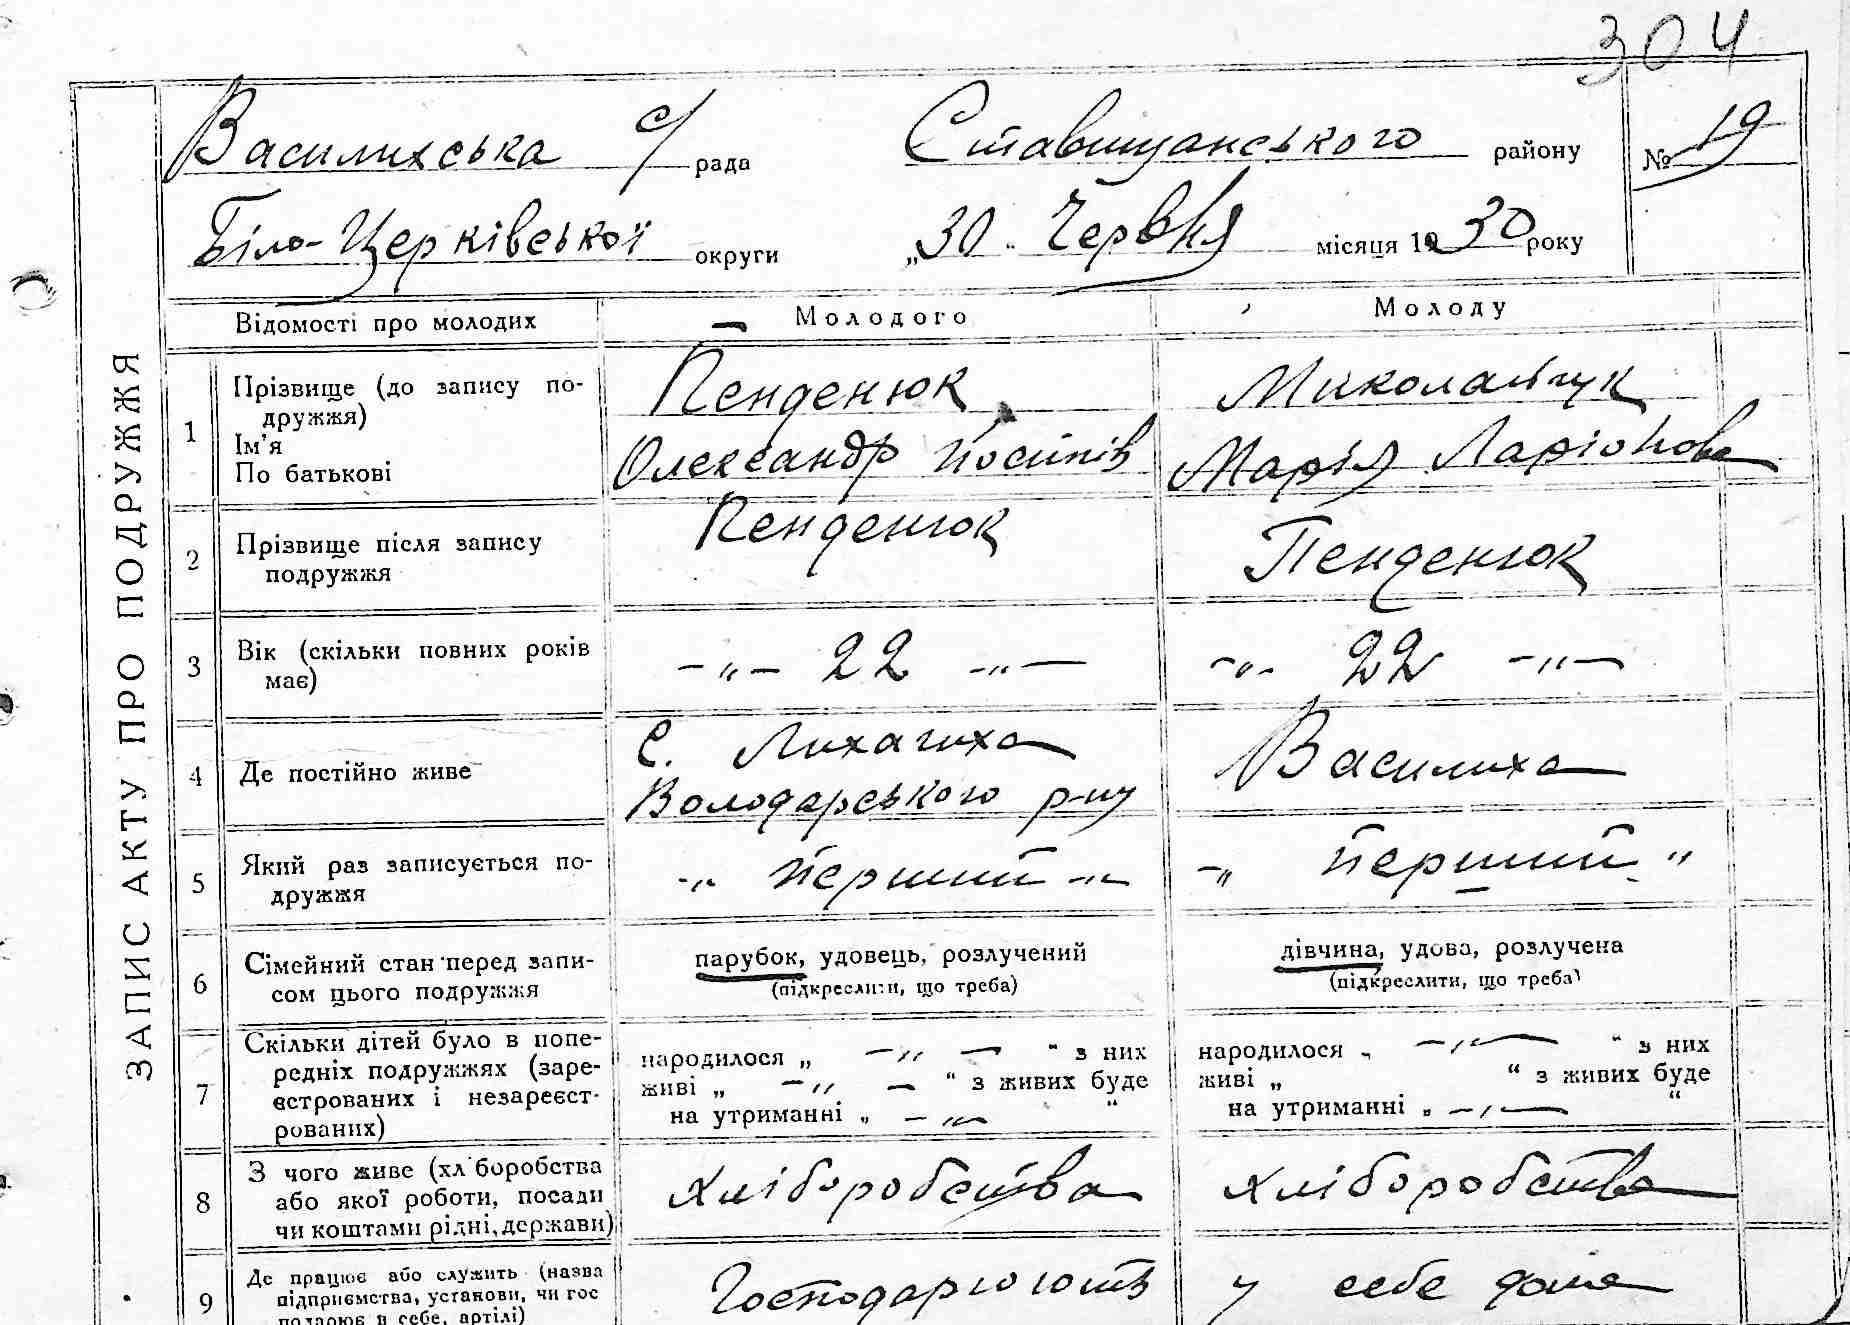 304
Василихська с/рада Ставищанського району № 19
Біло-Церківської округи „30" Червня місяця 1930 року
ЗАПИС АКТУ ПРО ПОДРУЖЖЯ
Відомості про молодих Молодого Молоду
1 Прізвище (до запису по-
дружжя)
Ім'я
По батькові
Пенденюк
Олександр Йосипів
Миколайчук
Марія Ларіонова
2 Прізвище після запису
подружжя
Пенденюк
Пенденюк
3 Вік (скільки повних років
має)
-„- 22 -„-
-„- 22 -„-
4 Де постійно живе
С. Лихачиха
Володарського р-ну
Василиха
5 Який раз записується по-
дружжя
-„ перший -„-
-„ перший „
6 Сімейний стан перед запи-
сом цього подружжя
парубок, удовець, розлучений
(підкреслити, що треба)
дівчина, удова, розлучена
(підкреслити, що треба)
7 Скільки дітей було в попе-
редніх подружжях (заре-
єстрованих і незареєст-
рованих)
народилося „ -„- “ з них
живі „ -„- “ з живих буде
на утриманні „ -„- “
народилося „ -„- “ з них
живі „ “ з живих буде
на утриманні „ -„- “
8 З чого живе (хліборобства
або якої роботи, посади
чи коштами рідні, держави)
хліборобства
хліборобства
9 Де працює або служить (назва
підприємства, установи, чи гос
подарює в себе, артілі)
Господарюють у себе дома